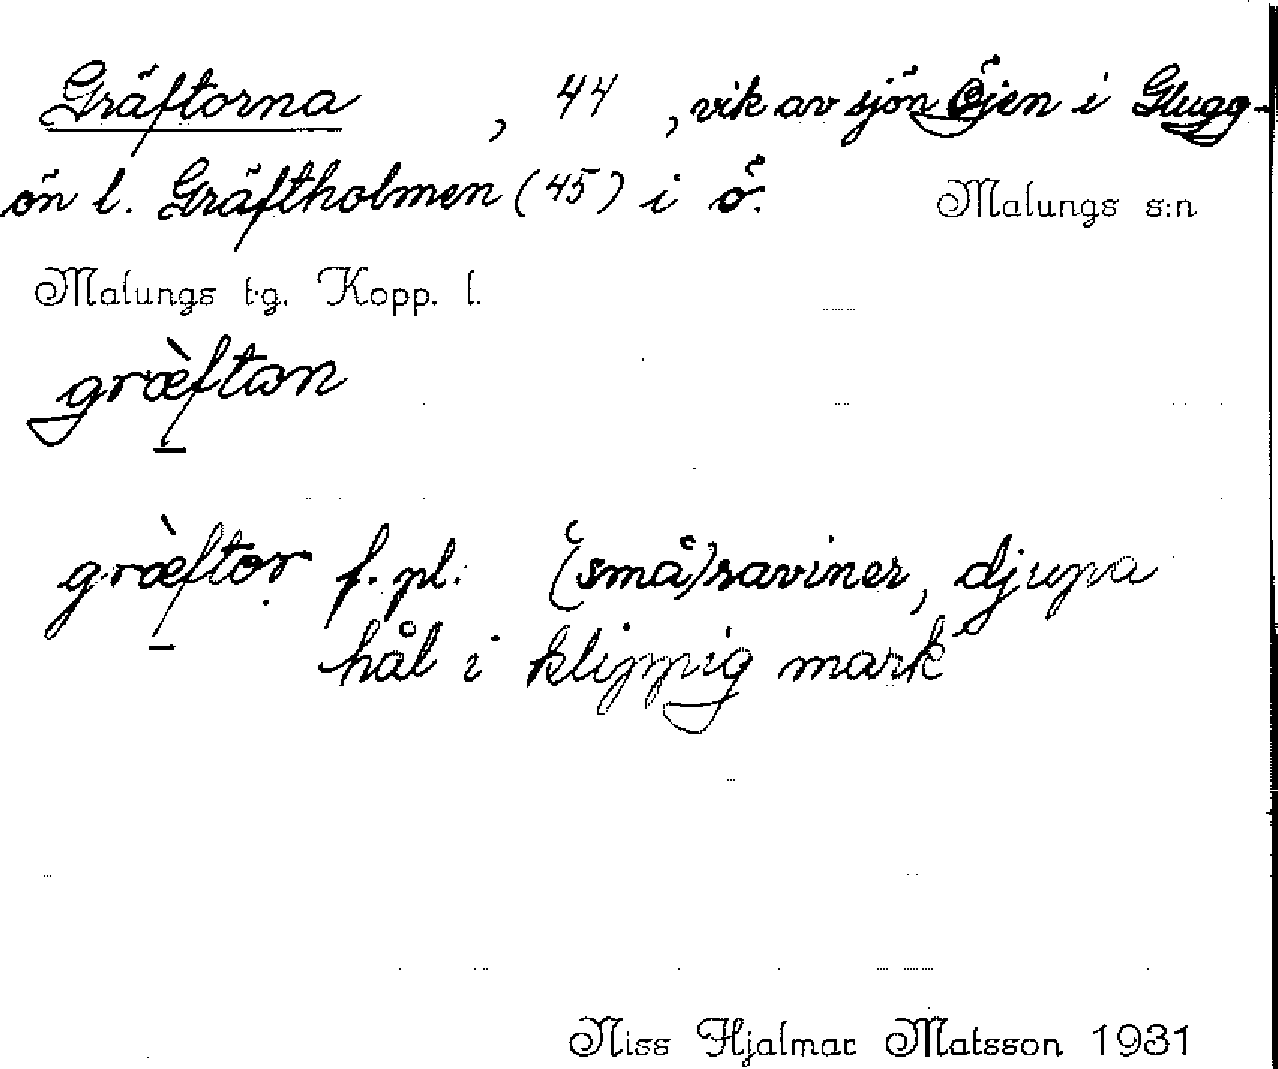 Gräftorna, 44, vik av sjön Öjen i Glugg-
ön l. Gräftholmen (45) i ö. Malungs s:n
Malungs t.g. Kopp. l.
græ̀ftan
græ̀ftor f. pl. (små)raviner, djupa
hål i klippig mark
Niss Hjalmar Matsson 1931